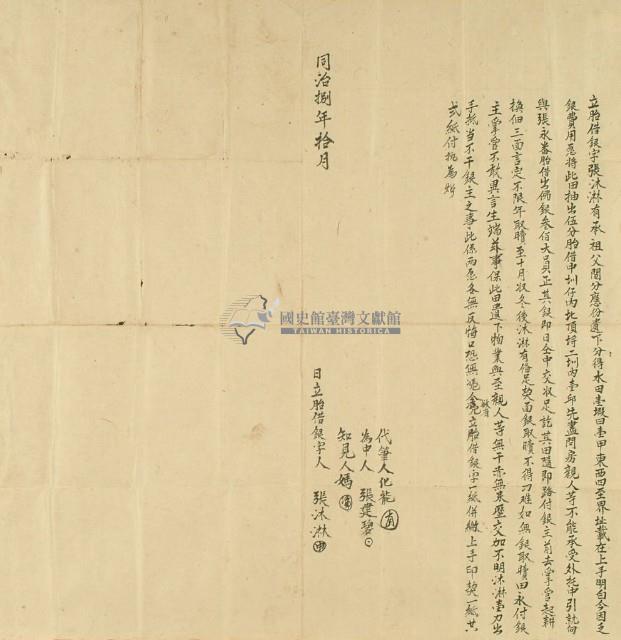 立胎借銀字張沐淋有承祖父鬮分應份遺下分得水田壹段田壹甲東西四至界址載在上手明白今因乏
銀費用愿將此田抽出伍分胎借中圳仔內北頂埒二圳內壹邱先盡問房親人等不能承受外托中引就向
與張永番胎借出佛銀叁佰大員正其銀即日仝中交收足訖其田隨即踏付銀主前去掌管起耕
換佃三面言定不限年取贖至十月收冬後沐淋有俻足契面銀取贖不得刁难如無銀取贖田永付銀
主掌管不敢異言生端茲事保此田遺下物業與至親人等無干亦無来歷交加不明沐淋壹力出
手抵当不干銀主之事此係兩愿各無反悔口恐無憑今立胎借銀字一紙併繳上手印契一紙共
弍紙付执為炤
代筆人
為中人 張建碧
知見人媽
日立胎借銀字人 張沐淋
同治捌年拾月
國史館臺灣文獻館
TAIWAN HISTORICA